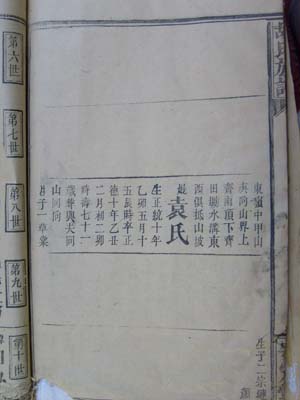 氏族譜
生子二宗
東嶺中甲山
庚向山界上
齊南頂下齊
田塍水溝東
西俱抵山坡
袁氏
生正統十年
乙卯五月十
五辰時卒正
德十年乙丑
二月初二卯
時壽七十二
歲葬與夫同
山同向
子一章
第六世
第七世
第八世
第九世
第十世